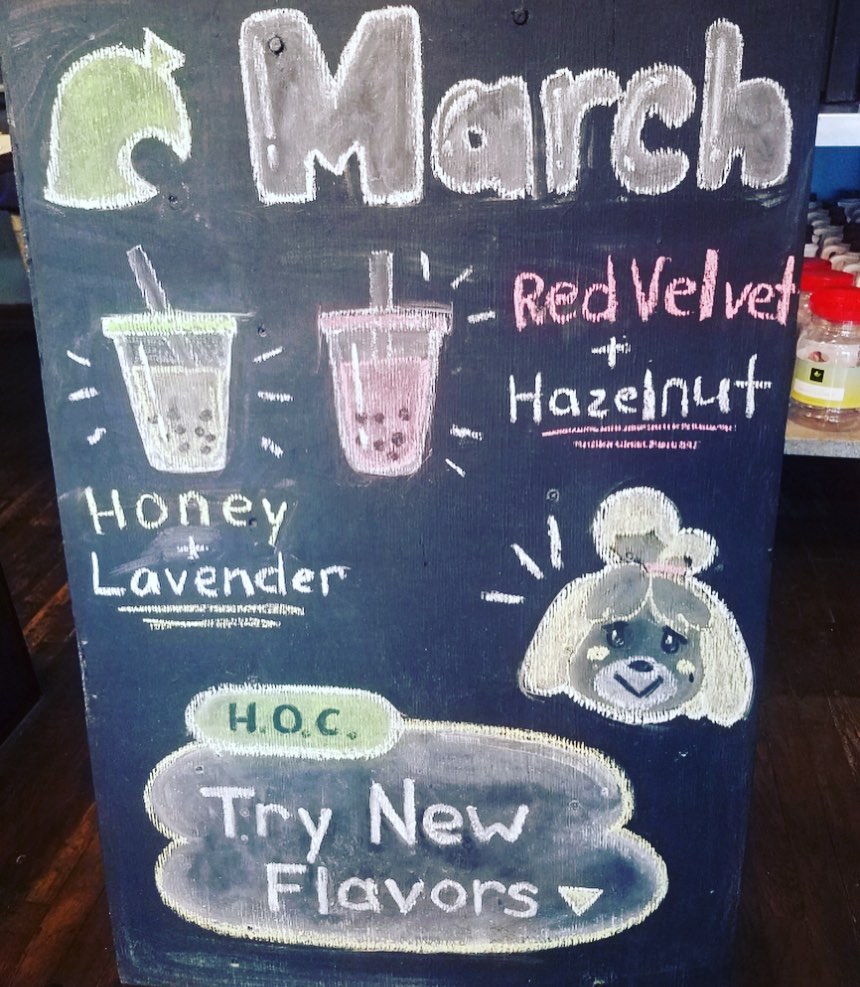 March
Red Velvet
+
Hazelnut
Honey
+
Lavender
H.O.C.
Try New
Flavors